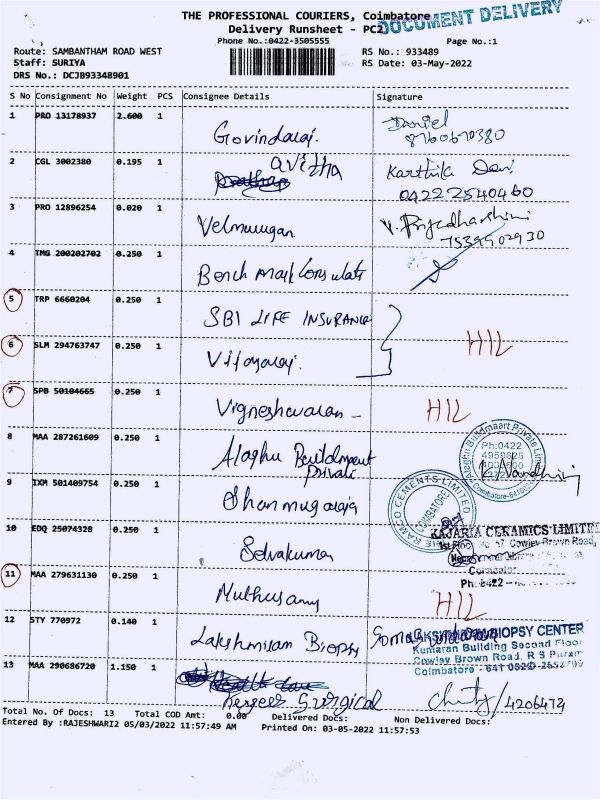 THE PROFESSIONAL COURIERS, Coimbatore
DOCUMENT DELIVERY
Delivery Runsheet - PC2
Phone No.:0422-3505555
Page No.:1
Route: SAMBANTHAM ROAD WEST
RS No.: 933489
Staff: SURIYA
RS Date: 03-May-2022
DRS No.: DCJB93348901
S No Consignment No Weight PCS Consignee Details Signature
1 PRO 13178937 2.600 1 Govindaraj. Daniel
8760670380
2 CGL 3002380 0.195 1 avitha Karthika Devi
0422 2540460
3 PRO 12896254 0.020 1 Velmurugan V. Priyadharshini
7539902930
4 TMG 200202702 0.250 1 Bench mark Consulate
5 TRP 6660204 0.250 1 SBI LIFE INSURANCE
6 SLM 294763747 0.250 1 Vijayaraj. HIL
7 SPB 50104665 0.250 1 Vigneshwaran - HIL
8 MAA 287261609 0.250 1 Alaghu Buildmaart Private
Alaghu Buildmaart Private Limited
Ph:0422
4959625
Coimbatore
9 IXM 501409754 0.250 1 Shanmugaraja
THE RAMCO CEMENTS LIMITED
COIMBATORE
10 EDQ 25074328 0.250 1 Selvakumar
KAJARIA CERAMICS LIMITED
Cowley Brown Road,
Coimbator
Ph: 0422
11 MAA 279631130 0.250 1 Muthusamy HIL
12 STY 770972 0.140 1 Lakshmiram Biopsy
BIOPSY CENTER
Kumaran Building Second Floor
Cowley Brown Road, R S Puram
Coimbatore - 641
13 MAA 290686720 1.150 1 Surgical
/4206479
Total No. Of Docs: 13 Total COD Amt: 0.00 Delivered Docs: Non Delivered Docs:
Entered By :RAJESHWARI2 05/03/2022 11:57:49 AM Printed On: 03-05-2022 11:57:53